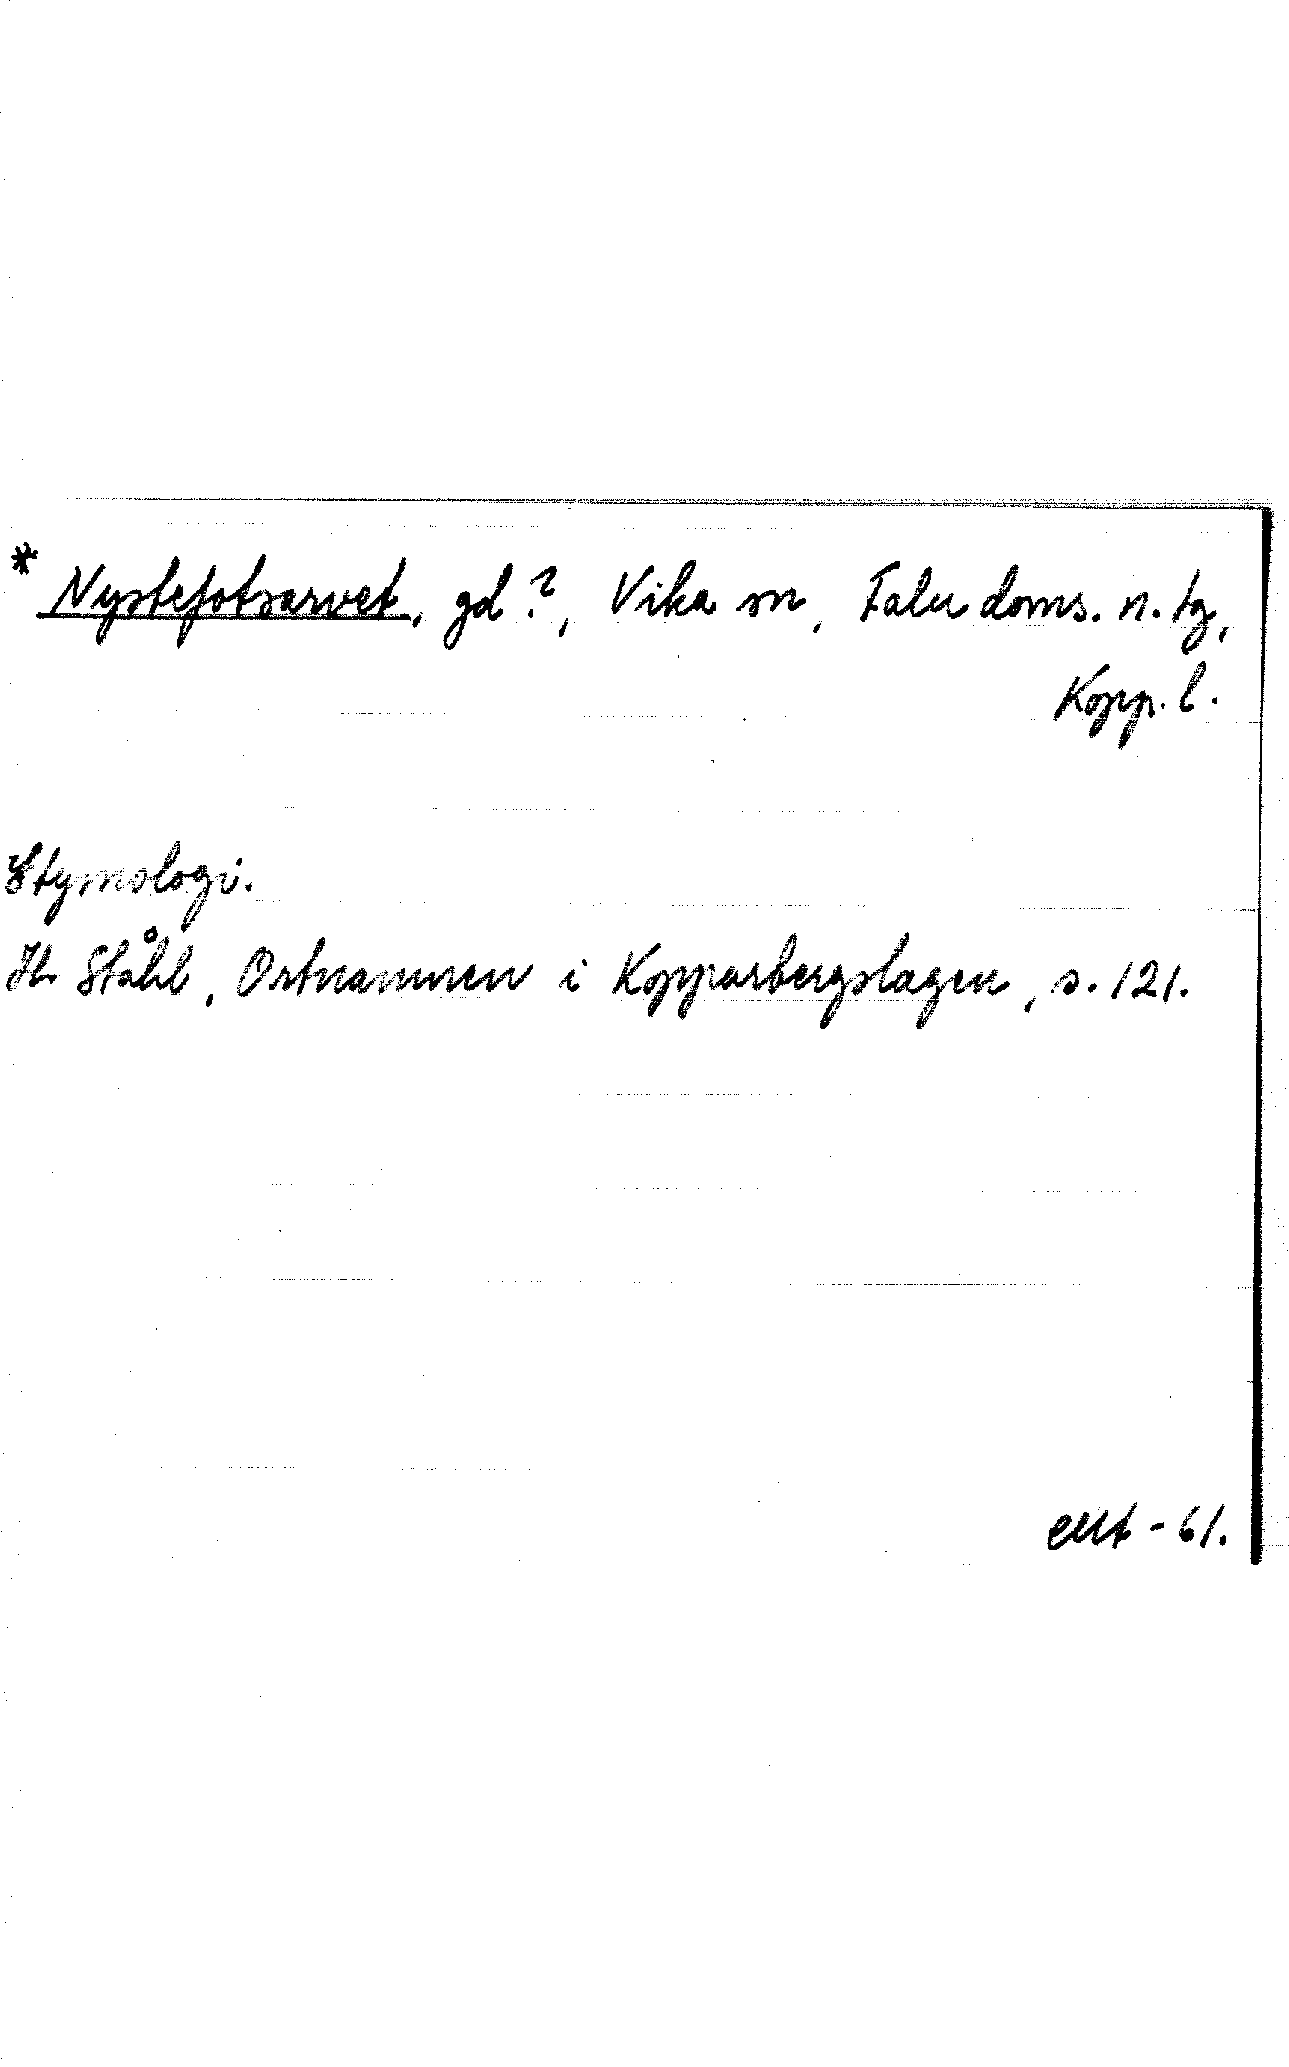 * Nystefotsarvet, gd?, Vika sn, Falu doms. n. tg,
Kopp. l.
Etymologi.
Hr Ståhl, Ortnamnen i Kopparbergslagen, s. 121.
EMt - 61.